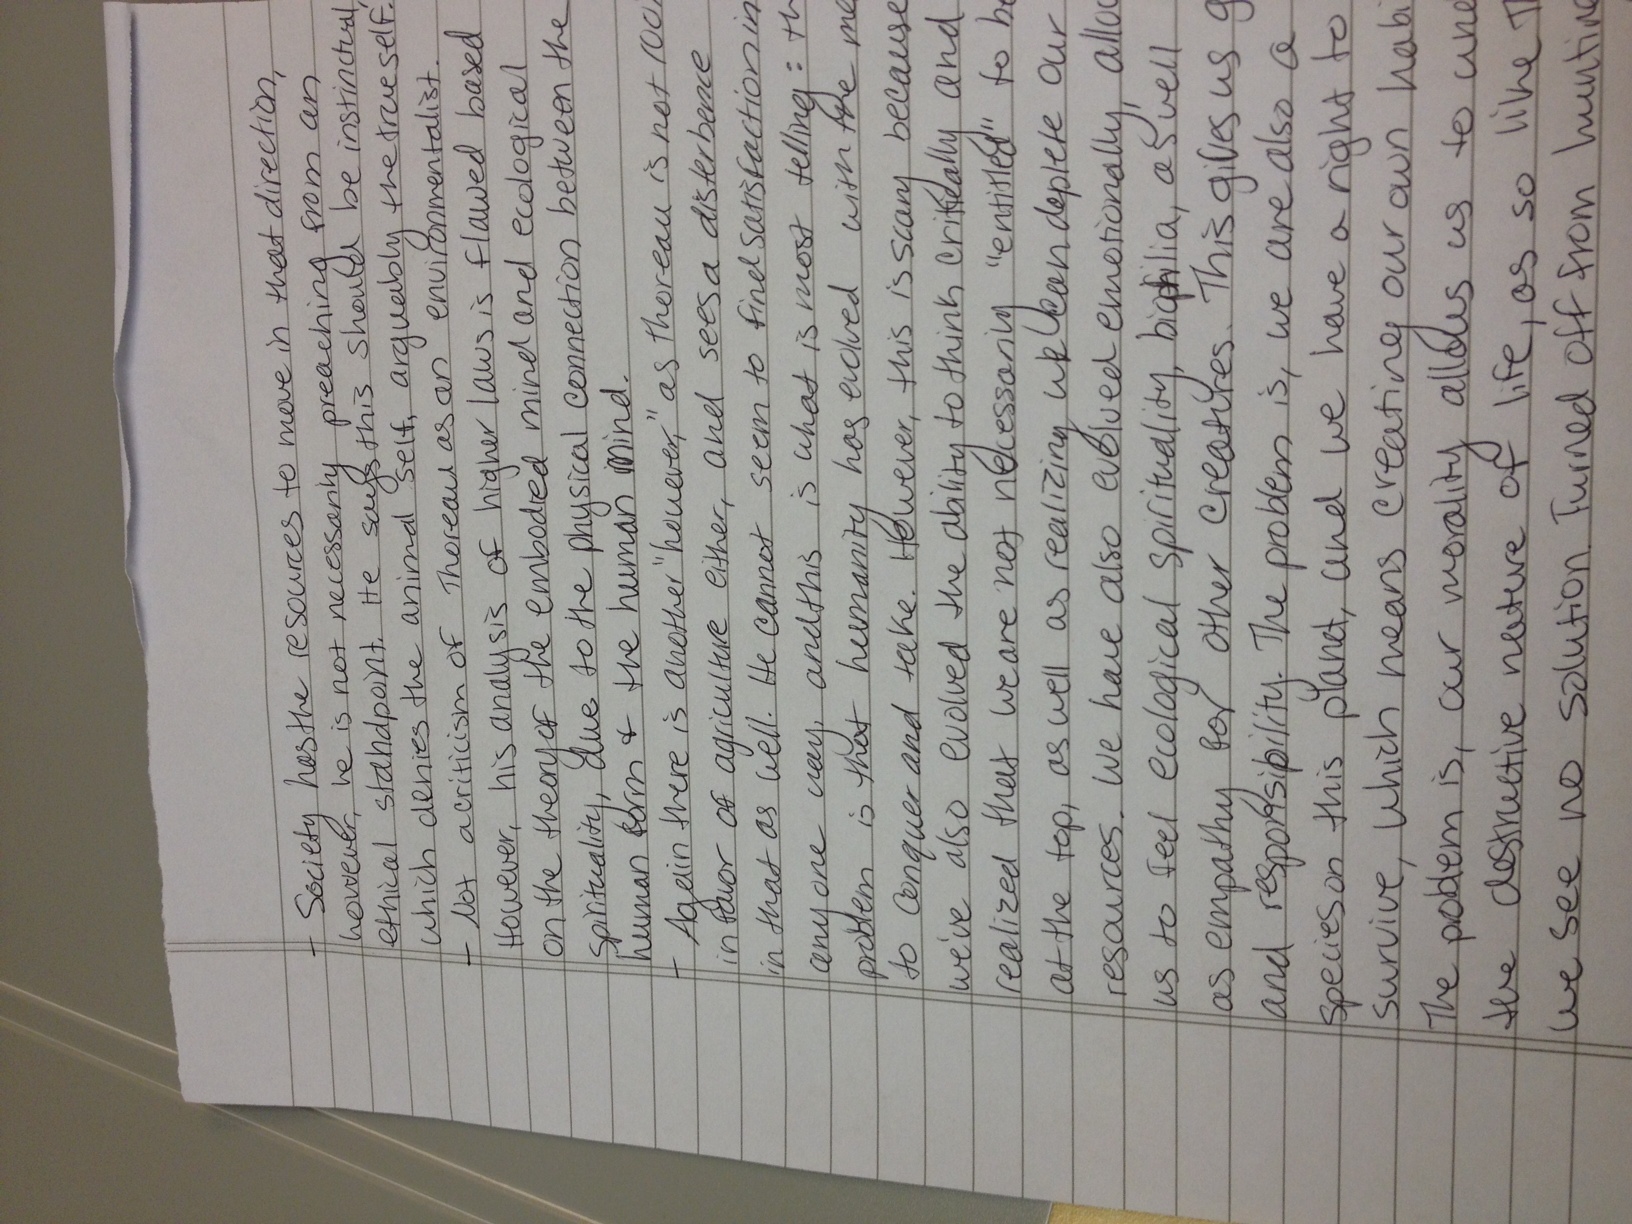 - Society has the resources to move in that direction,
however, he is not necessarily preaching from an
ethical standpoint. He says this should be instinctual,
which denies the animal self, arguably the true self.
- Not a criticism of Thoreau as an environmentalist.
However, his analysis of higher laws is flawed based
on the theory of the embodied mind and ecological
spirituality, due to the physical connection between the
human form & the human mind.
- Again there is another "however," as Thoreau is not
in favor of agriculture either, and sees a disterbence
in that as well. He cannot seem to find satisfaction in
any one way, and this is what is most telling: th
problem is that humanity has evolved with the me
to conquer and take. However, this is scary because
we've also evolved the ability to think critically and
realized that we are not necessarily "entitled" to be
at the top, as well as realizing we can deplete our
resources. We have also evolved emotionally, allo
us to feel ecological spirituality, biophilia, as well
as empathy for other creatures. This gives us g
and responsibility. The problem is, we are also a
species on this planet, and we have a right to
survive, which means creating our own habi
The problem is, our morality allows us to und
the destructive nature of life, as so like T
we see no solution. Turned off from hunting